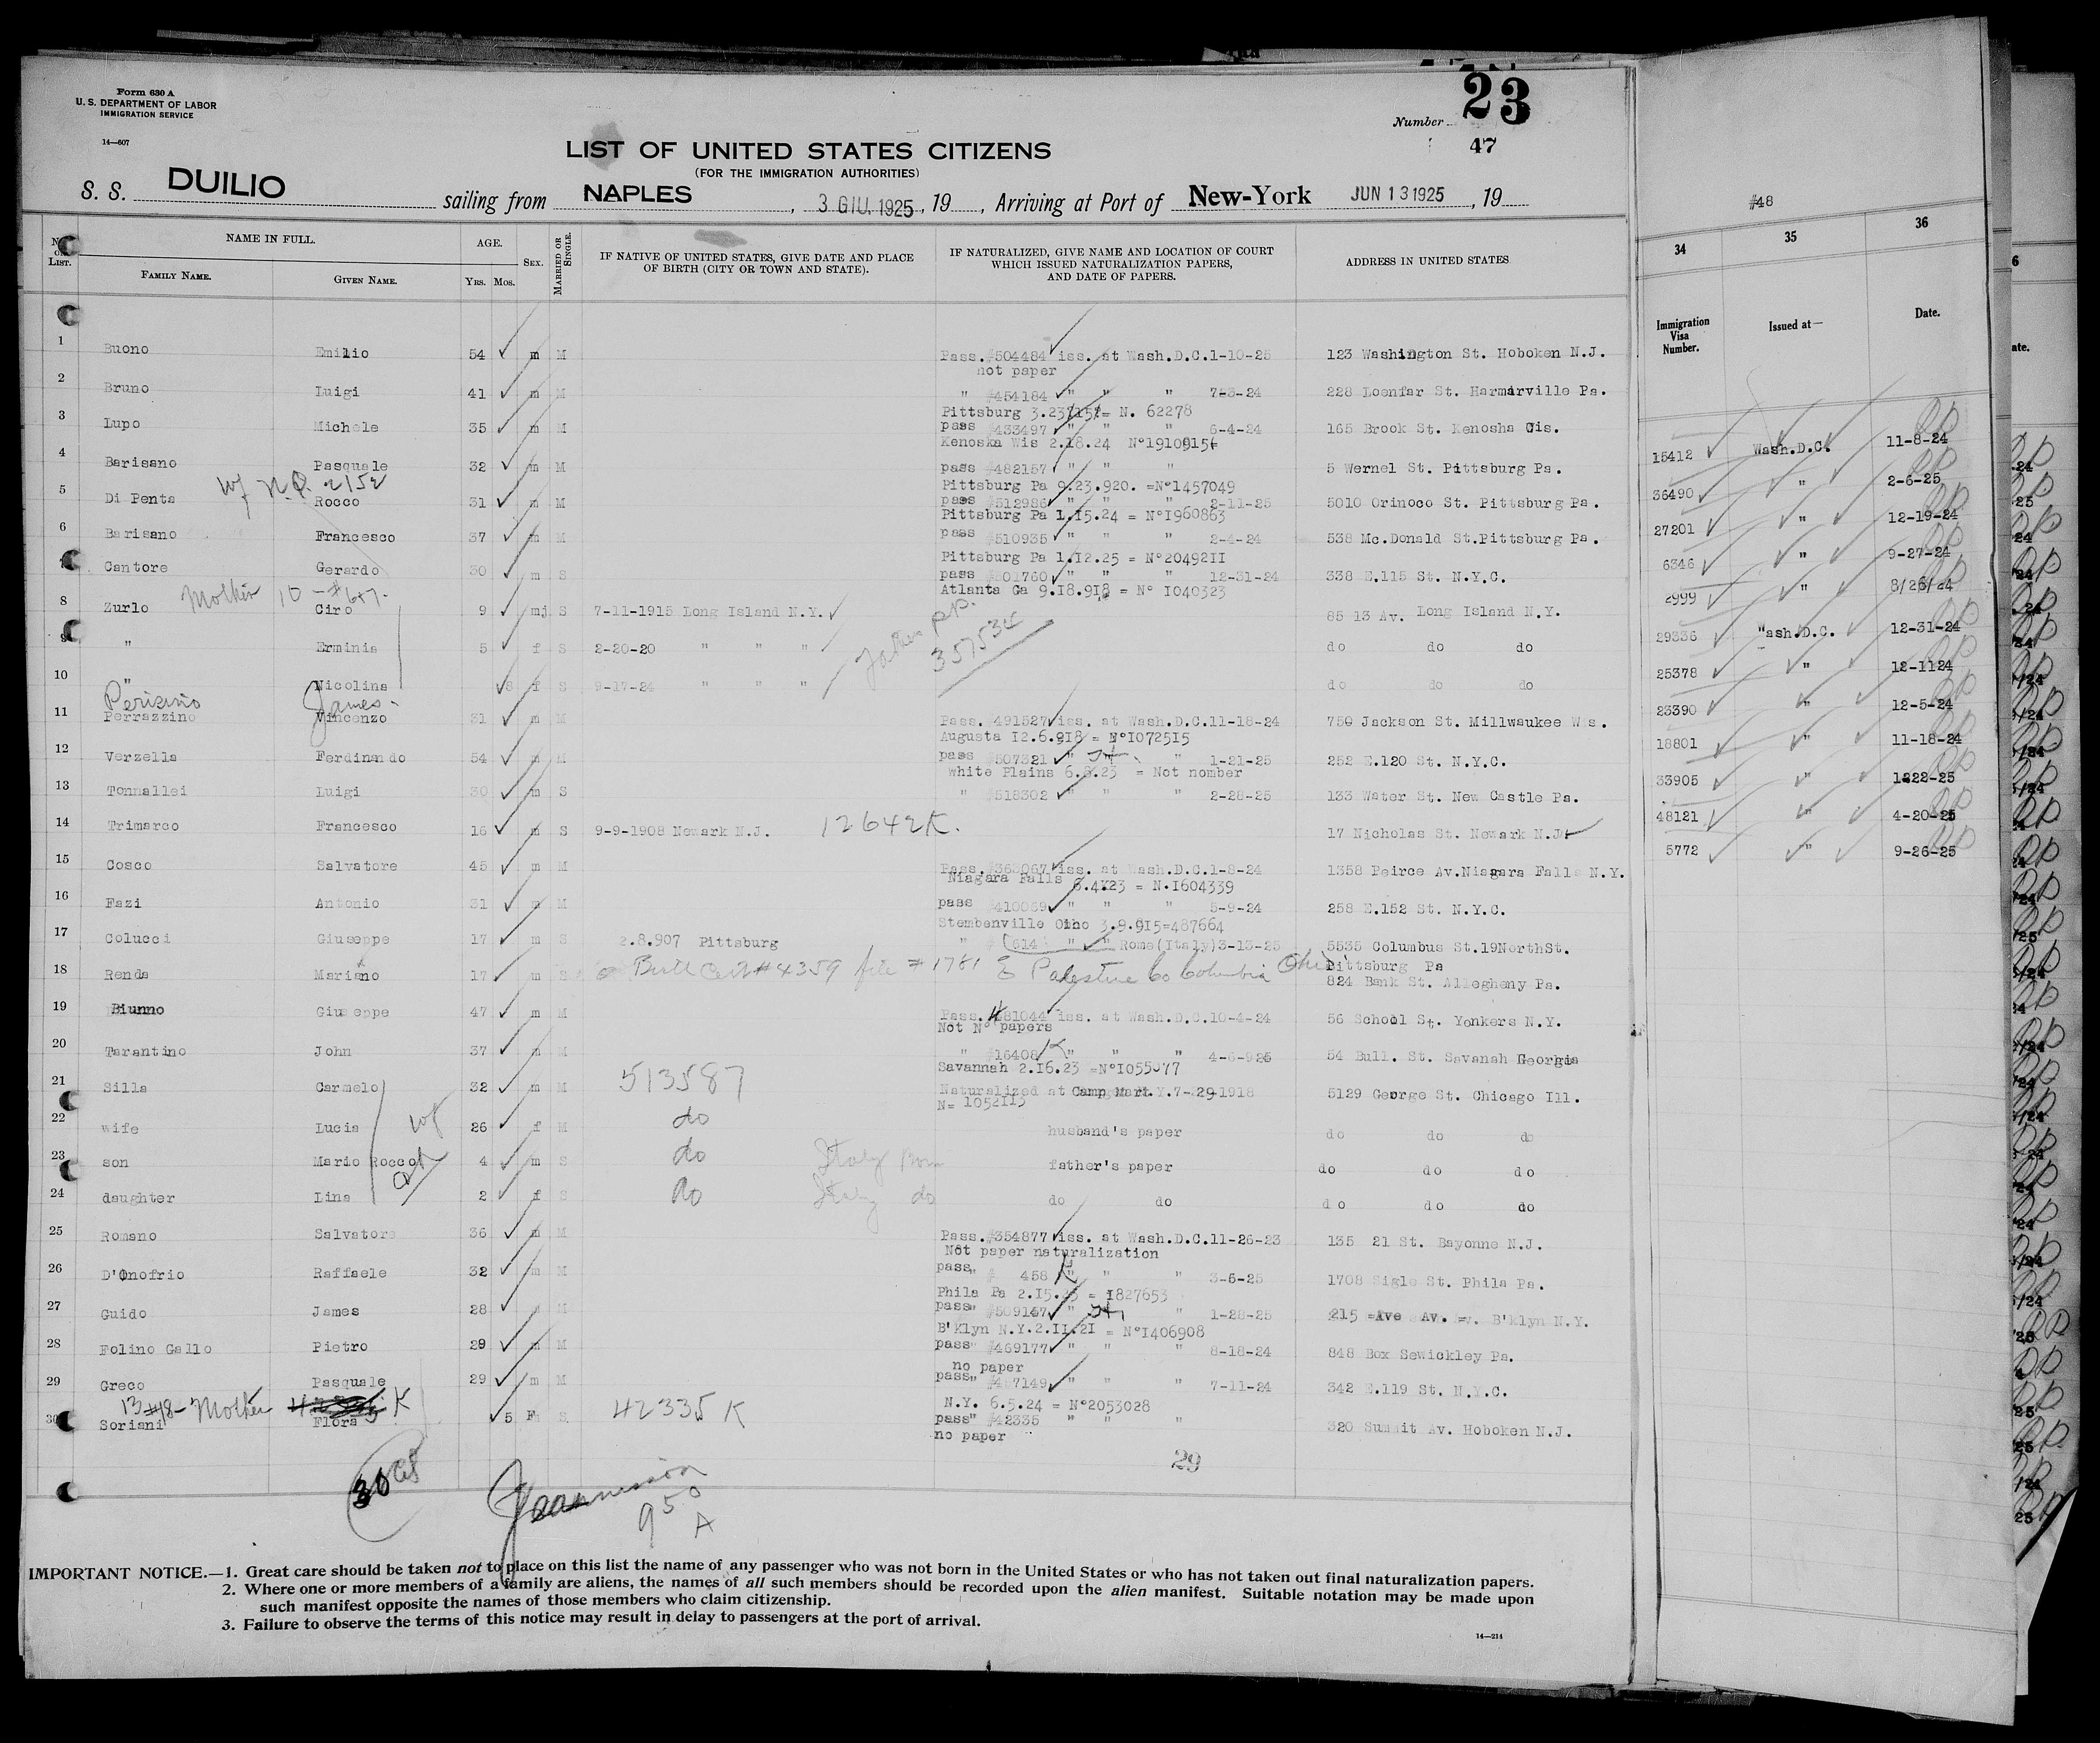 Form 630 A
U. S. DEPARTMENT OF LABOR
IMMIGRATION SERVICE
14—607
Number 23
47
LIST OF UNITED STATES CITIZENS
(FOR THE IMMIGRATION AUTHORITIES)
S. S. DUILIO sailing from NAPLES , 3 GIU. 1925 , 19 , Arriving at Port of New-York JUN 13 1925 , 19
No. on List. NAME IN FULL. AGE. Sex. Married or Single. IF NATIVE OF UNITED STATES, GIVE DATE AND PLACE OF BIRTH (CITY OR TOWN AND STATE). IF NATURALIZED, GIVE NAME AND LOCATION OF COURT WHICH ISSUED NATURALIZATION PAPERS, AND DATE OF PAPERS. ADDRESS IN UNITED STATES
Family Name. Given Name. Yrs. Mos.
1 Buono Emilio 54 m M Pass. #504484 iss. at Wash.D.C.1-10-25 123 Washington St. Hoboken N.J.
not paper
2 Bruno Luigi 41 m M " #454184 " " " 7-3-24 228 Loenfar St. Harmarville Pa.
Pittsburg 3.23 = N. 62278
3 Lupo Michele 35 m M pass #433497 " " " 6-4-24 165 Brook St. Kenosha
Kenoska Wis 2.18.24 N°1910915
4 Barisano Pasquale 32 m M pass #482157 " " " 5 Wernel St. Pittsburg Pa.
wf N.P. 2152
Pittsburg Pa 9.23.920. =N°1457049
5 Di Penta Rocco 31 m M pass #512986 " " " 2-11-25 5010 Orinoco St. Pittsburg Pa.
Pittsburg Pa 1.15.24 = N°1960863
6 Barisano Francesco 37 m M pass #510935 " " " 2-4-24 538 Mc.Donald St.Pittsburg Pa.
Pittsburg Pa 1.12.25 = N°2049211
7 Cantore Gerardo 30 m S pass #501760 " " " 12-31-24 338 E.115 St. N.Y.C.
Atlanta Ga 9.18.918 = N° 1040323
Mother 10 - #647.
8 Zurlo Ciro 9 mj S 7-11-1915 Long Island N.Y. 85 13 Av. Long Island N.Y.
Father pp. 357534
9 " Erminia 5 f S 2-20-20 " " " do do do
10 " Nicolina 8 f S 9-17-24 " " " do do do
Perisino James
11 Perrazzino Vincenzo 31 m M Pass. #491527 iss. at Wash.D.C.11-18-24 750 Jackson St. Millwaukee Wis.
Augusta 12.6.918 = N°1072515
12 Verzella Ferdinando 54 m M pass #507321 " " 1-21-25 252 E.120 St. N.Y.C.
White Plains 6.8.23 = Not nomber
13 Tonnallei Luigi 30 m S " #518302 " " " 2-28-25 133 Water St. New Castle Pa.
14 Trimarco Francesco 16 m S 9-9-1908 Newark N.J. 12642K. 17 Nicholas St. Newark N.J.
15 Cosco Salvatore 45 m M Pass. #363067 iss. at Wash.D.C.1-8-24 1358 Peirce Av.Niagara Falls N.Y.
Niagara Falls 6.4.23 = N.1604339
16 Fazi Antonio 31 m M pass #410089 " " " 5-9-24 258 E.152 St. N.Y.C.
Stembenville Oiho 3.9.915=487664
17 Colucci Giuseppe 17 m S 2.8.907 Pittsburg " # 614 " " Rome(Italy)3-13-25 5535 Columbus St.19NorthSt.
Pittsburg Pa
18 Renda Mariano 17 m S Birth Cert #4359 file #1781 E Palestine Co Columbia Ohio 824 Bank St. Allegheny Pa.
19 Biunno Giuseppe 47 m M Pass. #481044 iss. at Wash.D.C.10-4-24 56 School St. Yonkers N.Y.
Not N° papers
20 Tarantino John 37 m M " #16408K " " " 4-6-925 54 Bull. St. Savanah Georgia
Savannah 2.16.23 =N°1055077
21 Silla Carmelo 32 m M 513587 Naturalized at Camp 7-29-1918 5129 George St. Chicago Ill.
N= 1052113
22 wife Lucia 26 f M do husband's paper do do do
wf
23 son Mario Rocco 4 m S do Italy Born father's paper do do do
24 daughter Lina 2 f S do Italy do do do do do do
25 Romano Salvatore 36 m M Pass.#354877 iss. at Wash.D.C.11-26-23 135 21 St. Bayonne N.J.
Not paper naturalization
26 D'Onofrio Raffaele 32 m M pass" # 458 K " " 3-6-25 1708 Sigle St. Phila Pa.
Phila Pa 2.15.23 = 1827653
27 Guido James 28 m M pass" #509167 " " 1-28-25 215 Av. B'klyn N.Y.
B'Klyn N.Y.2.11.21 = N°1406908
28 Folino Gallo Pietro 29 m M pass" #469177 " " " 8-18-24 848 Box Sewickley Pa.
no paper
29 Greco Pasquale 29 m M pass" #467149 " " " 7-11-24 342 E.119 St. N.Y.C.
13 #48- Mother K
N.Y. 6.5.24 = N°2053028
30 Soriani Flora 5 F S 42335 K pass" #42335 " " " 320 Summit Av. Hoboken N.J.
no paper
29
30
950
A
IMPORTANT NOTICE.—1. Great care should be taken not to place on this list the name of any passenger who was not born in the United States or who has not taken out final naturalization papers.
2. Where one or more members of a family are aliens, the names of all such members should be recorded upon the alien manifest. Suitable notation may be made upon
such manifest opposite the names of those members who claim citizenship.
3. Failure to observe the terms of this notice may result in delay to passengers at the port of arrival.
14—214
#48
34 35 36
Immigration Visa Number. Issued at— Date.
15412 Wash.D.C. 11-8-24
36490 " 2-6-25
27201 " 12-19-24
6346 " 9-27-24
2999 " 8/26/24
29336 Wash.D.C. 12-31-24
25378 " 12-1124
23390 " 12-5-24
18801 " 11-18-24
33905 " 1-22-25
48121 " 4-20-25
5772 " 9-26-25